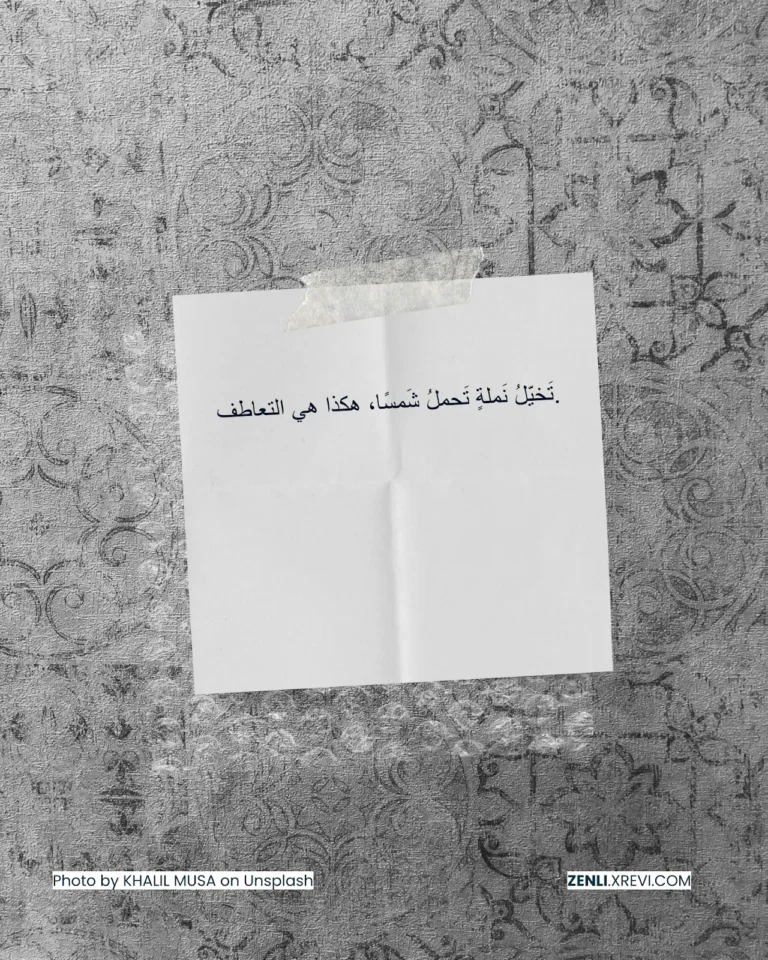 .تَخيّلُ نَملةٍ تَحملُ شَمسًا، هكذا هي التعاطف
Photo by KHALIL MUSA on Unsplash
ZENLI.XREVI.COM